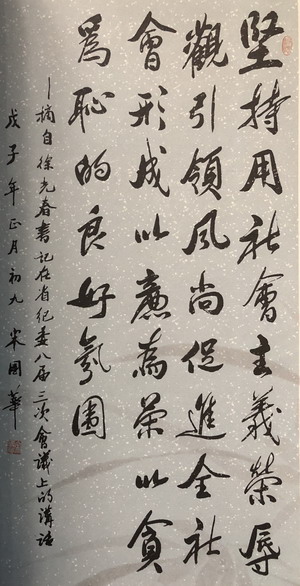 堅持用社會主義榮辱
觀引領風尚促進全社
會形成以廉為榮以貪
爲恥的良好氛圍
—摘自徐光春書記在省纪委八届三次會議上的講話
戊子年正月初九 宋國華